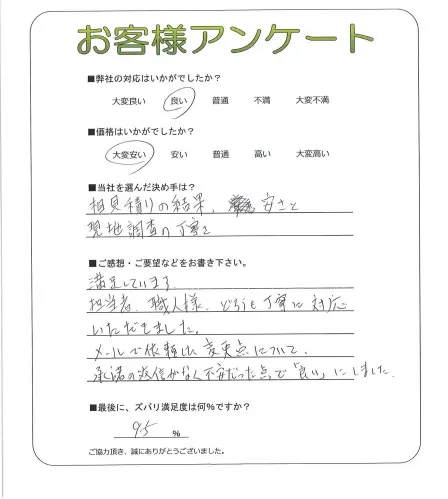 お客様アンケート
■弊社の対応はいかがでしたか？
大変良い 良い 普通 不満 大変不満
■価格はいかがでしたか？
大変安い 安い 普通 高い 大変高い
■当社を選んだ決め手は？
相見積りの結果、安さと
現地調査の丁寧さ
■ご感想・ご要望などをお書き下さい。
満足しています
担当者、職人様、どちらも丁寧に対応
いただきました。
メールで依頼した変更点について、
承諾の返信がなく不安だった点で「良い」にしました
■最後に、ズバリ満足度は何%ですか？
95 %
ご協力頂き、誠にありがとうございました。